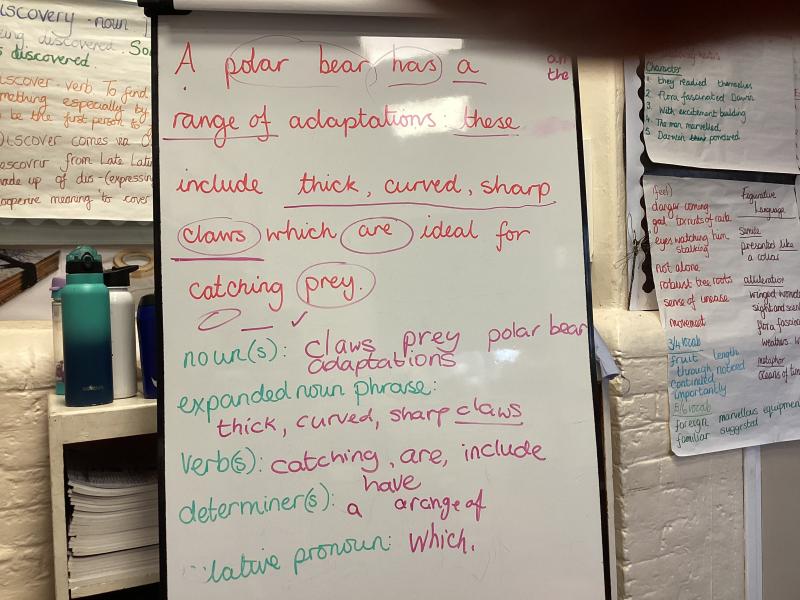 A polar bear has a
range of adaptations: these
include thick, curved, sharp
claws which are ideal for
catching prey.
the
noun(s): claws prey polar bear
adaptations
expanded noun phrase:
thick, curved, sharp claws
verb(s): catching, are, include
have
determiner(s): a a range of
lative pronoun: which.
iscovery noun
eing discovered. So
s discovered.
iscover verb To find
mething especially by
be the first person to
Discover comes via O
escovrir from Late Latin
ade up of dis-(expressing
cooperire meaning to cover
Character
1. they readied themselves
2. flora fascinated Darwin
3. With excitement building
4. The man marvelled
5. Darwin pondered
(feel)
danger coming
eyes watching him
stalking
not alone
robust tree roots
sense of unease
movement
3/4 vocab
fruit length
through noticed
continued
importantly
5/6 vocab
foreign marvellous equipmen
familiar suggested
Figurative
Language
Simile
presented like
a collar
alliteration
winged wond
sight and scen
flora fascina
weathers w
metaphor
oceans of tim